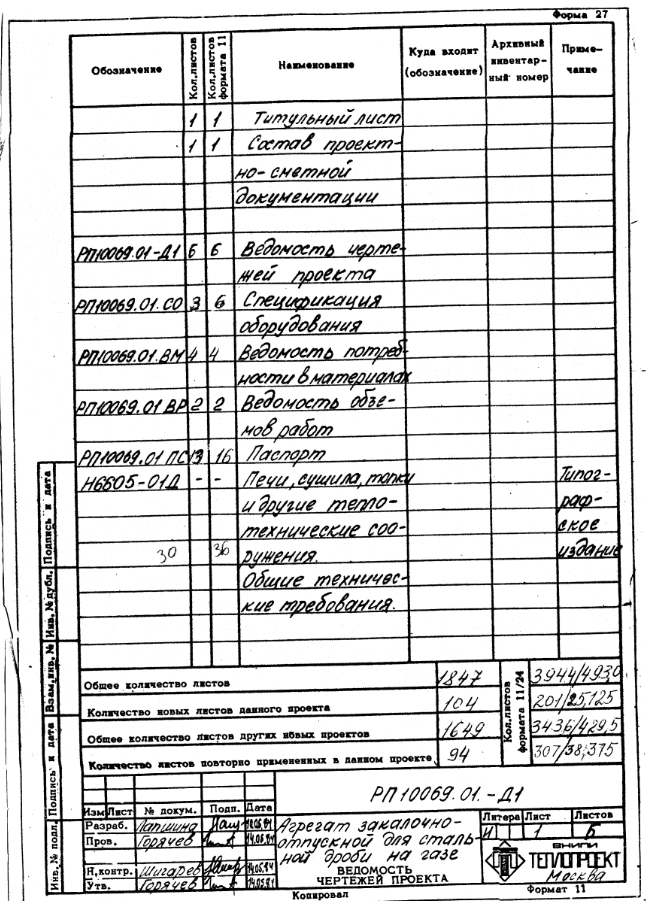 Форма 27
Обозначение
Кол.листов
Кол.листов формата 11
Наименование
Куда входит (обозначение)
Архивный инвентар- ный номер
Приме- чание
1 1 Титульный лист
1 1 Состав проект-
но-сметной
документации
РП10069.01-Д1 6 6 Ведомость черте-
жей проекта
РП10069.01.СО 3 6 Спецификация
оборудования
РП10069.01.ВМ 4 4 Ведомость потреб-
ности в материалах
РП10069.01 ВР 2 2 Ведомость объе-
мов работ
РП10069.01 ПС 13 16 Паспорт
Н6605-01Д - - Печи, сушила, топки Типог-
и другие тепло- раф-
технические соо- ское
30 36 ружения. издание
Общие техничес-
кие требования.
Общее количество листов 1847 3944/4930
Количество новых листов данного проекта 104 201/25,125
Общее количество листов других новых проектов 1649 3436/429,5
Количество листов повторно примененных в данном проекте 94 307/38,375
Кол.листов формата 11/24
РП 10069.01.-Д1
Изм Лист № докум. Подп. Дата
Разраб. Лапшина
Пров. Горячев
Н.контр. Шигарев
Утв. Горячев
Агрегат закалочно-
отпускной для сталь-
ной дроби на газе
ВЕДОМОСТЬ
ЧЕРТЕЖЕЙ ПРОЕКТА
Литера Лист Листов
И 1 6
ВНИПИ
ТЕПЛОПРОЕКТ
Москва
Копировал
Формат 11
Инв.№ подл.
Подпись и дата
Взам.инв.№
Инв.№ дубл.
Подпись и дата